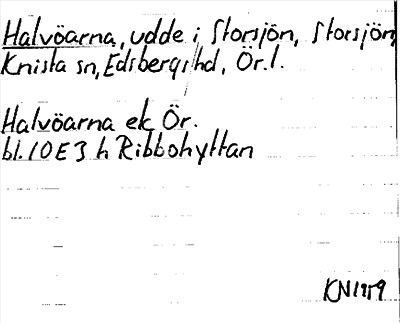 Halvöarna, udde i Storsjön, Storsjön,
Knista sn, Edsbergs hd, Ör. l.
Halvöarna ek Ör.
bl. 10 E 3 h Ribbohyttan
KN 1959